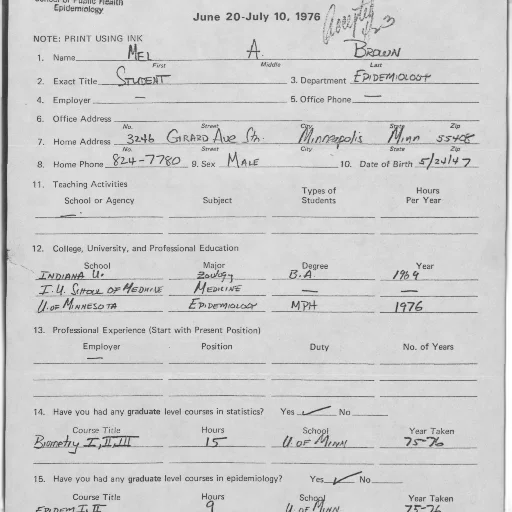 School of Public Health
Epidemiology
June 20-July 10, 1976
Accepted
4/23
NOTE: PRINT USING INK
1. Name MEL A. BROWN
First Middle Last
2. Exact Title STUDENT 3. Department EPIDEMIOLOGY
4. Employer — 5. Office Phone —
6. Office Address
No. Street City State Zip
7. Home Address 3246 GIRARD AVE So. Minneapolis Minn 55408
No. Street City State Zip
8. Home Phone 824-7780 9. Sex MALE 10. Date of Birth 5/24/47
11. Teaching Activities
School or Agency Subject Types of Students Hours Per Year
—
12. College, University, and Professional Education
School Major Degree Year
INDIANA U. Zoology B.A. 1969
I.U. SCHOOL OF MEDICINE MEDICINE — —
U. OF MINNESOTA EPIDEMIOLOGY MPH 1976
13. Professional Experience (Start with Present Position)
Employer Position Duty No. of Years
—
14. Have you had any graduate level courses in statistics? Yes ✓ No
Course Title Hours School Year Taken
Biometry I, II, III 15 U. OF MINN 75-76
15. Have you had any graduate level courses in epidemiology? Yes ✓ No
Course Title Hours School Year Taken
EPIDEM I, II 9 U of MINN 75-76